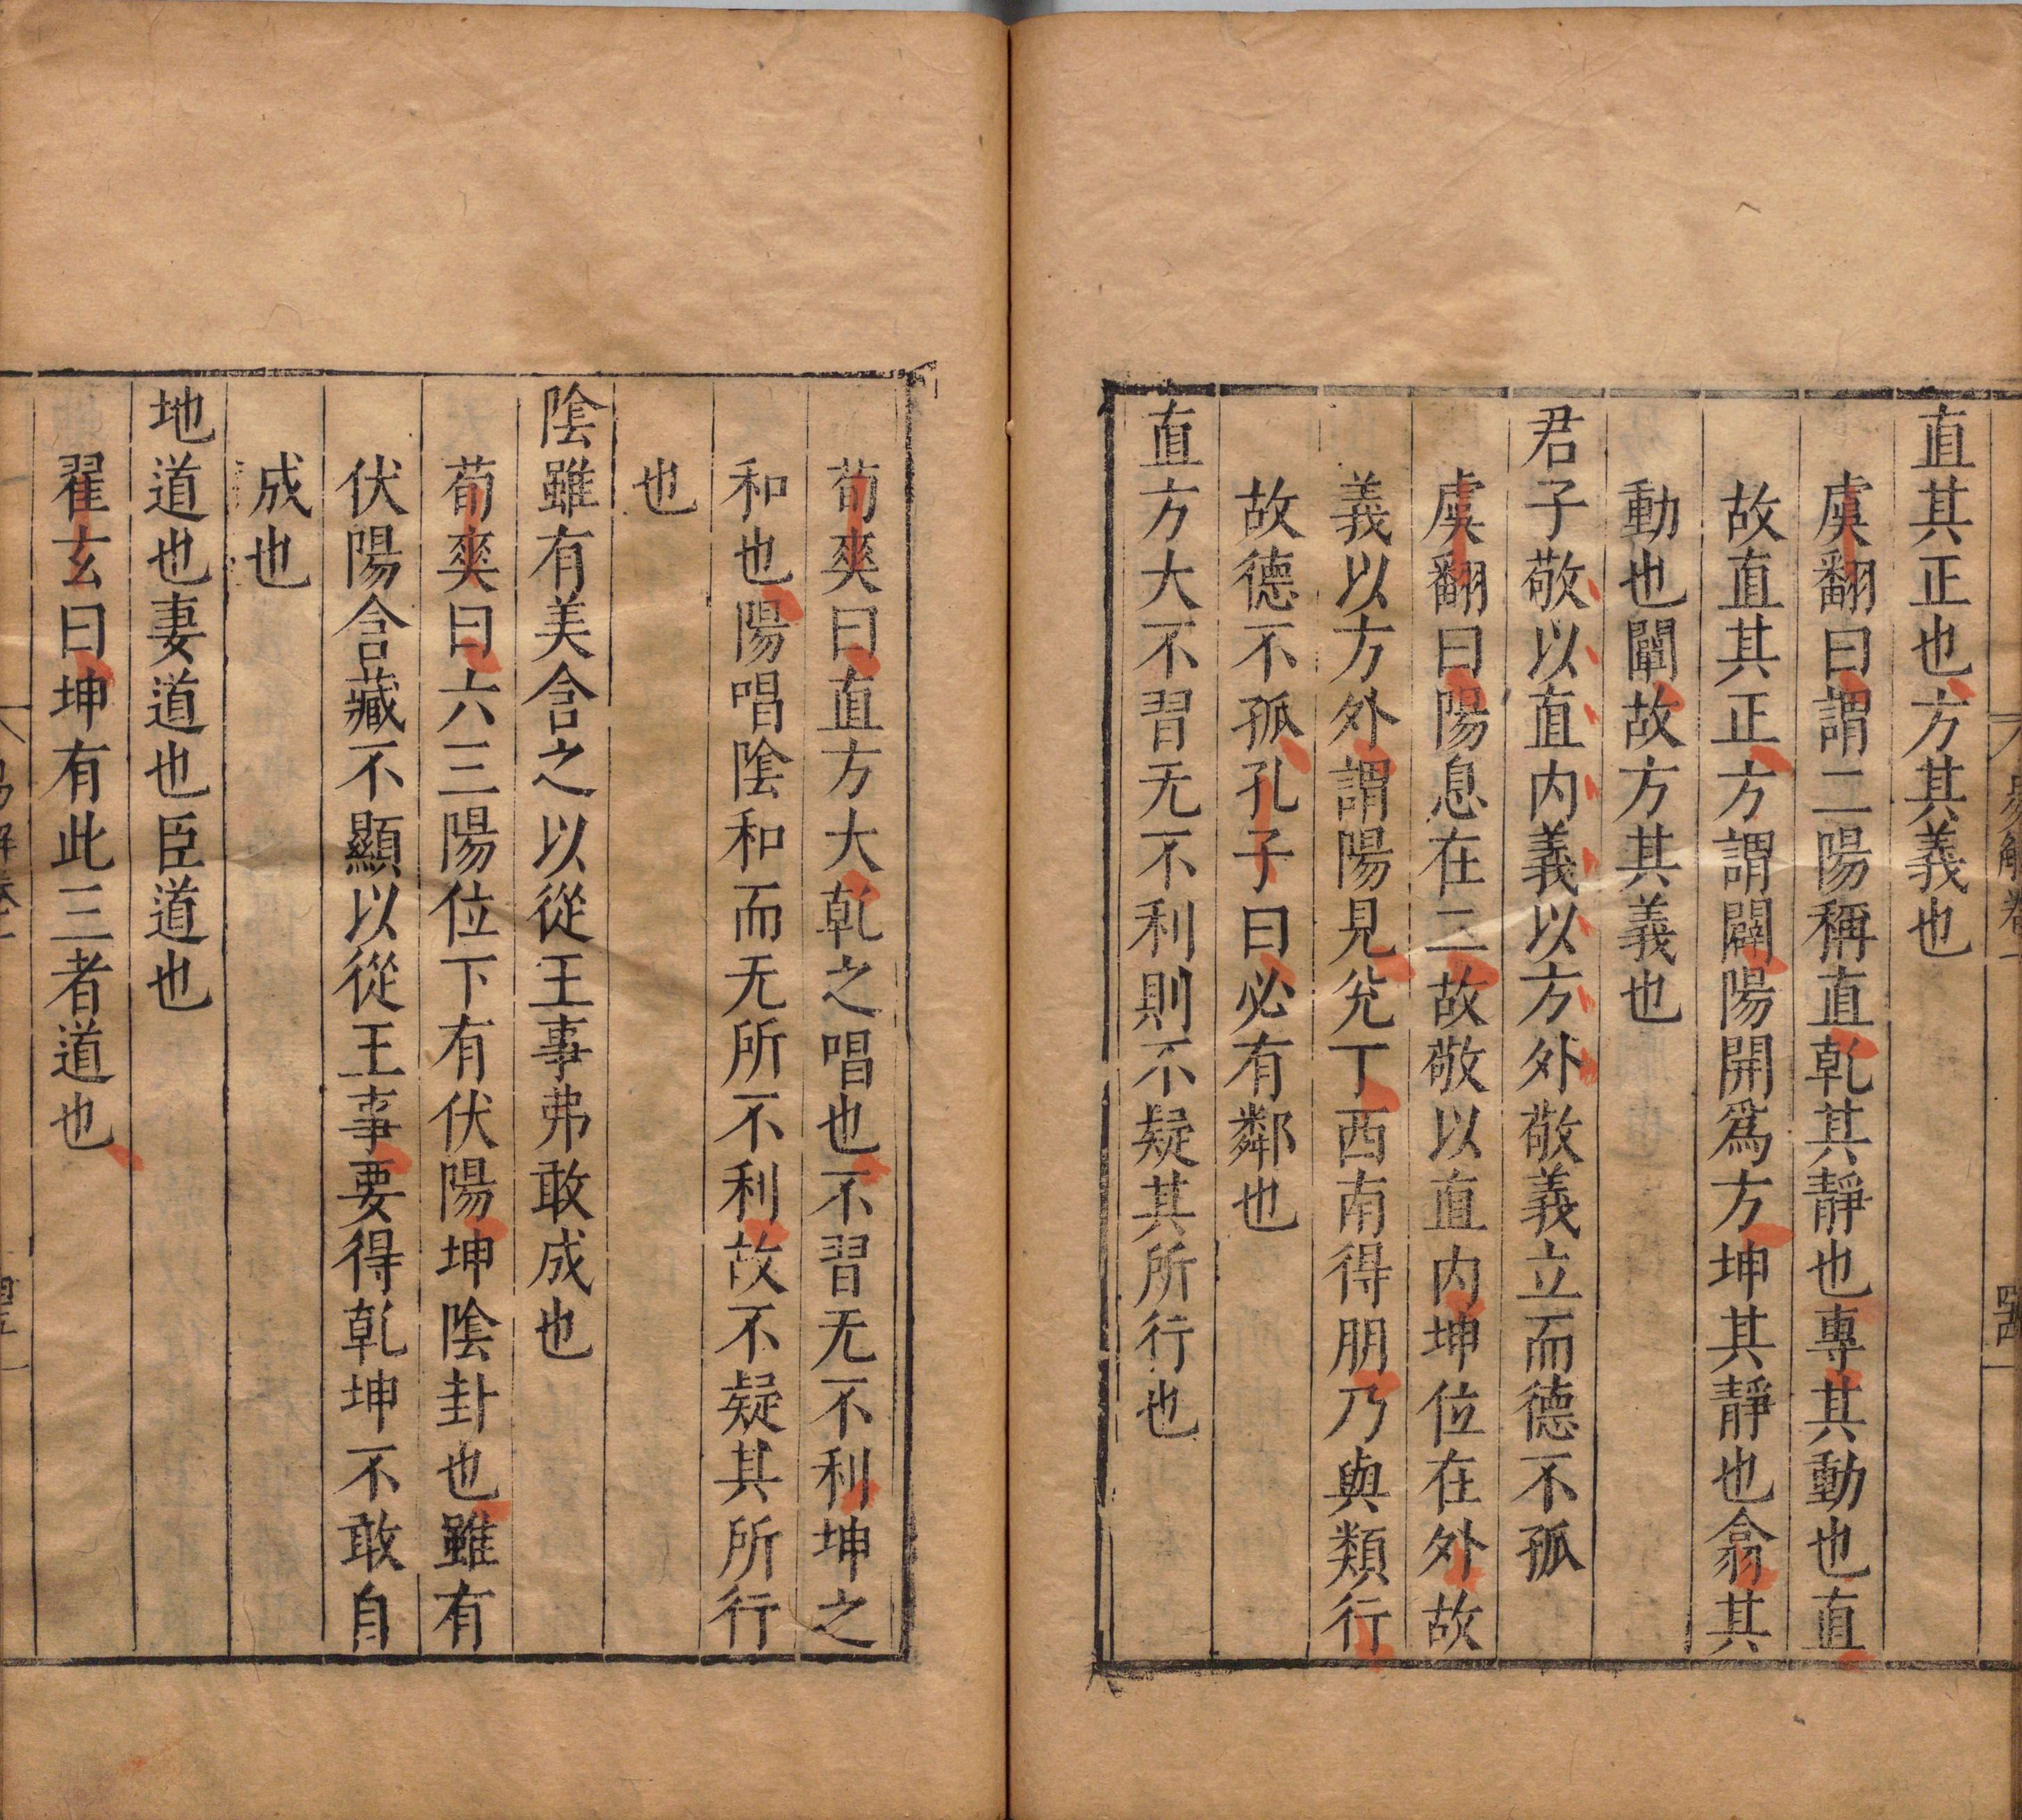 易解卷二
四
直其正也方其義也
虞翻曰謂二陽稱直乾其靜也專其動也直
故直其正方謂闢陽開爲方坤其靜也翕其
動也闢故方其義也
君子敬以直内義以方外敬義立而德不孤
虞翻曰陽息在二故敬以直内坤位在外故
義以方外謂陽見兊丁西南得朋乃與類行
故德不孤孔子曰必有鄰也
直方大不習无不利則不疑其所行也
荀爽曰直方大乾之唱也不習无不利坤之
和也陽唱陰和而无所不利故不疑其所行
也
陰雖有美含之以從王事弗敢成也
荀爽曰六三陽位下有伏陽坤陰卦也雖有
伏陽含藏不顯以從王事要得乾坤不敢自
成也
地道也妻道也臣道也
翟玄曰坤有此三者道也